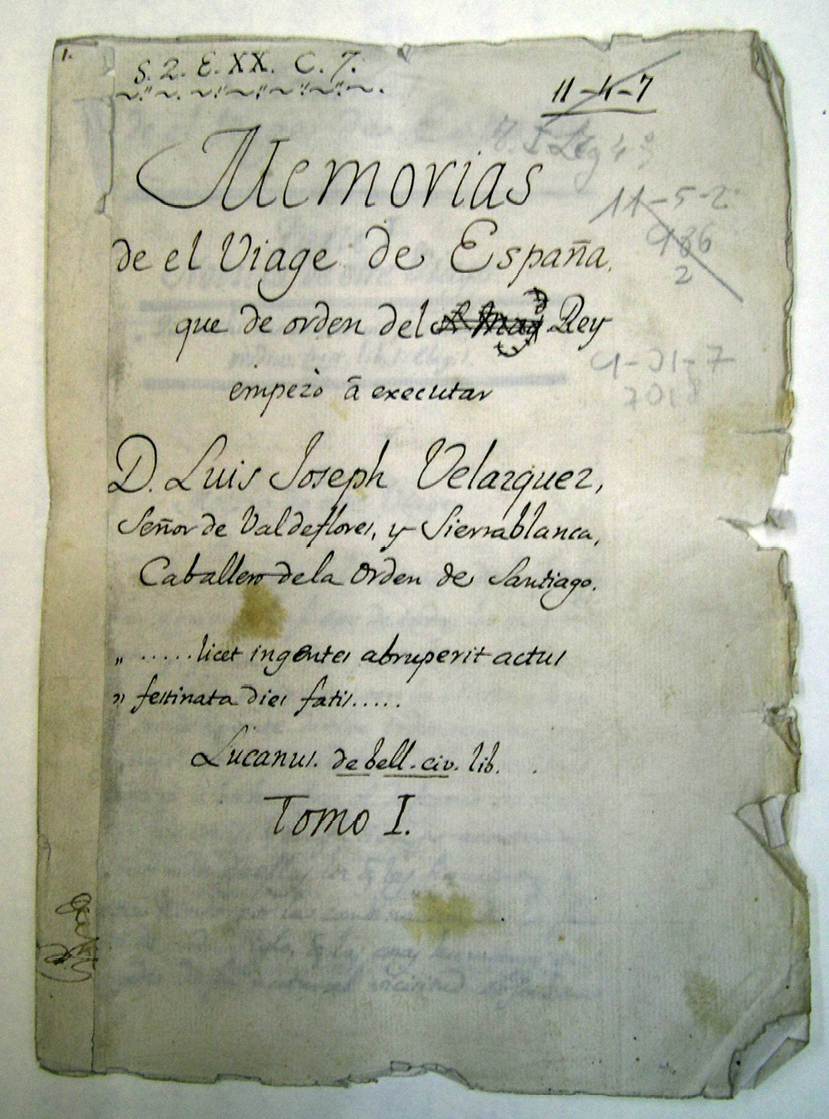 1.
S. 2. E. XX. C. 7.
11-4-7
Memorias
11-5-2
de el Viage de España,
986
2
que de orden del Rey
9-31-7
7018
empezò â executar
D. Luis Joseph Velazquez,
Señor de Valdeflores, y Sierrablanca,
Caballero de la Orden de Santiago.
" .....licet ingentes abruperit actus
" festinata dies fatis.....
Lucanus. de bell. civ. lib. .
Tomo I.